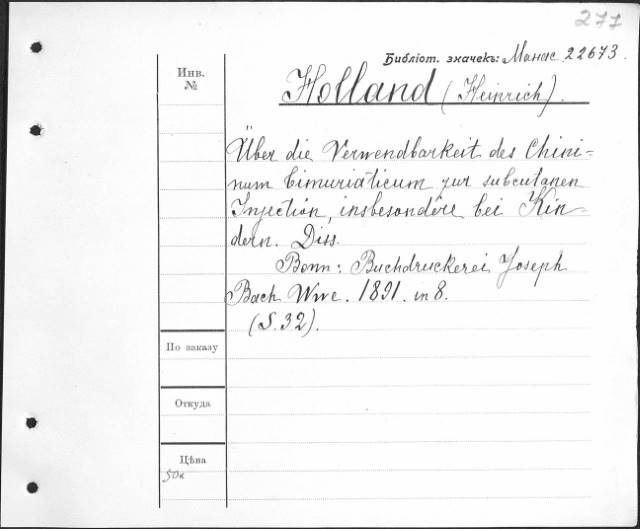 277
Библіот. значекъ: Манас 22673.
Инв.
№
Holland (Heinrich).
Über die Verwendbarkeit des Chini=
num bimuriaticum zur subcutanen
Injection, insbesondère bei Kin=
dern. Diss.
Bonn: Buchdruckerei Joseph
Bach Wwe. 1891. in 8.
(S. 32).
По заказу
Откуда
Цѣна
50к